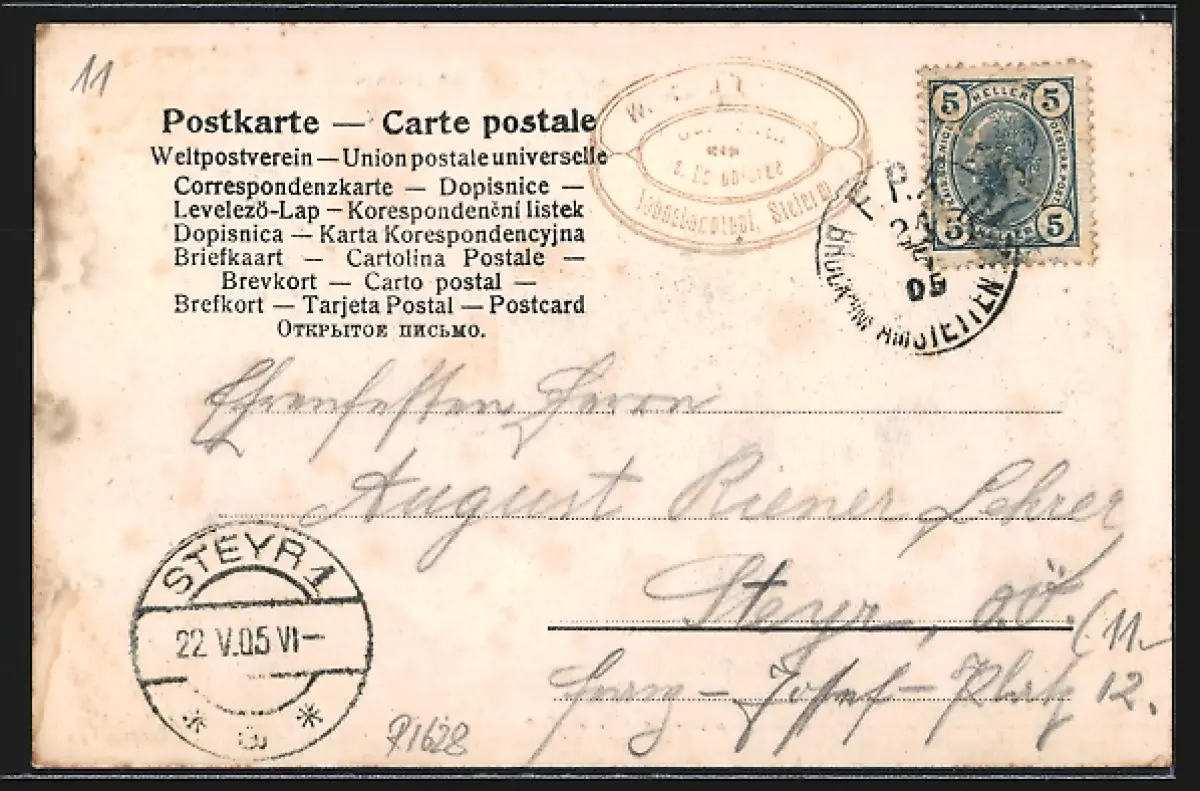 11
Postkarte — Carte postale
Weltpostverein — Union postale universelle
Correspondenzkarte — Dopisnice —
Levelező-Lap — Korespondenční listek
Dopisnica — Karta Korespondencyjna
Briefkaart — Cartolina Postale —
Brevkort — Carto postal —
Brefkort — Tarjeta Postal — Postcard
Открытое письмо.
W.
Steierm
5 HELLER 5
5 HELLER 5
05
AMSTETTEN
Herrn
August Riener Lehrer
Steyr, o.Ö.
Franz-Josef-Platz 12.
(11.
STEYR 1
22 V.05 VI—
* *
P1628